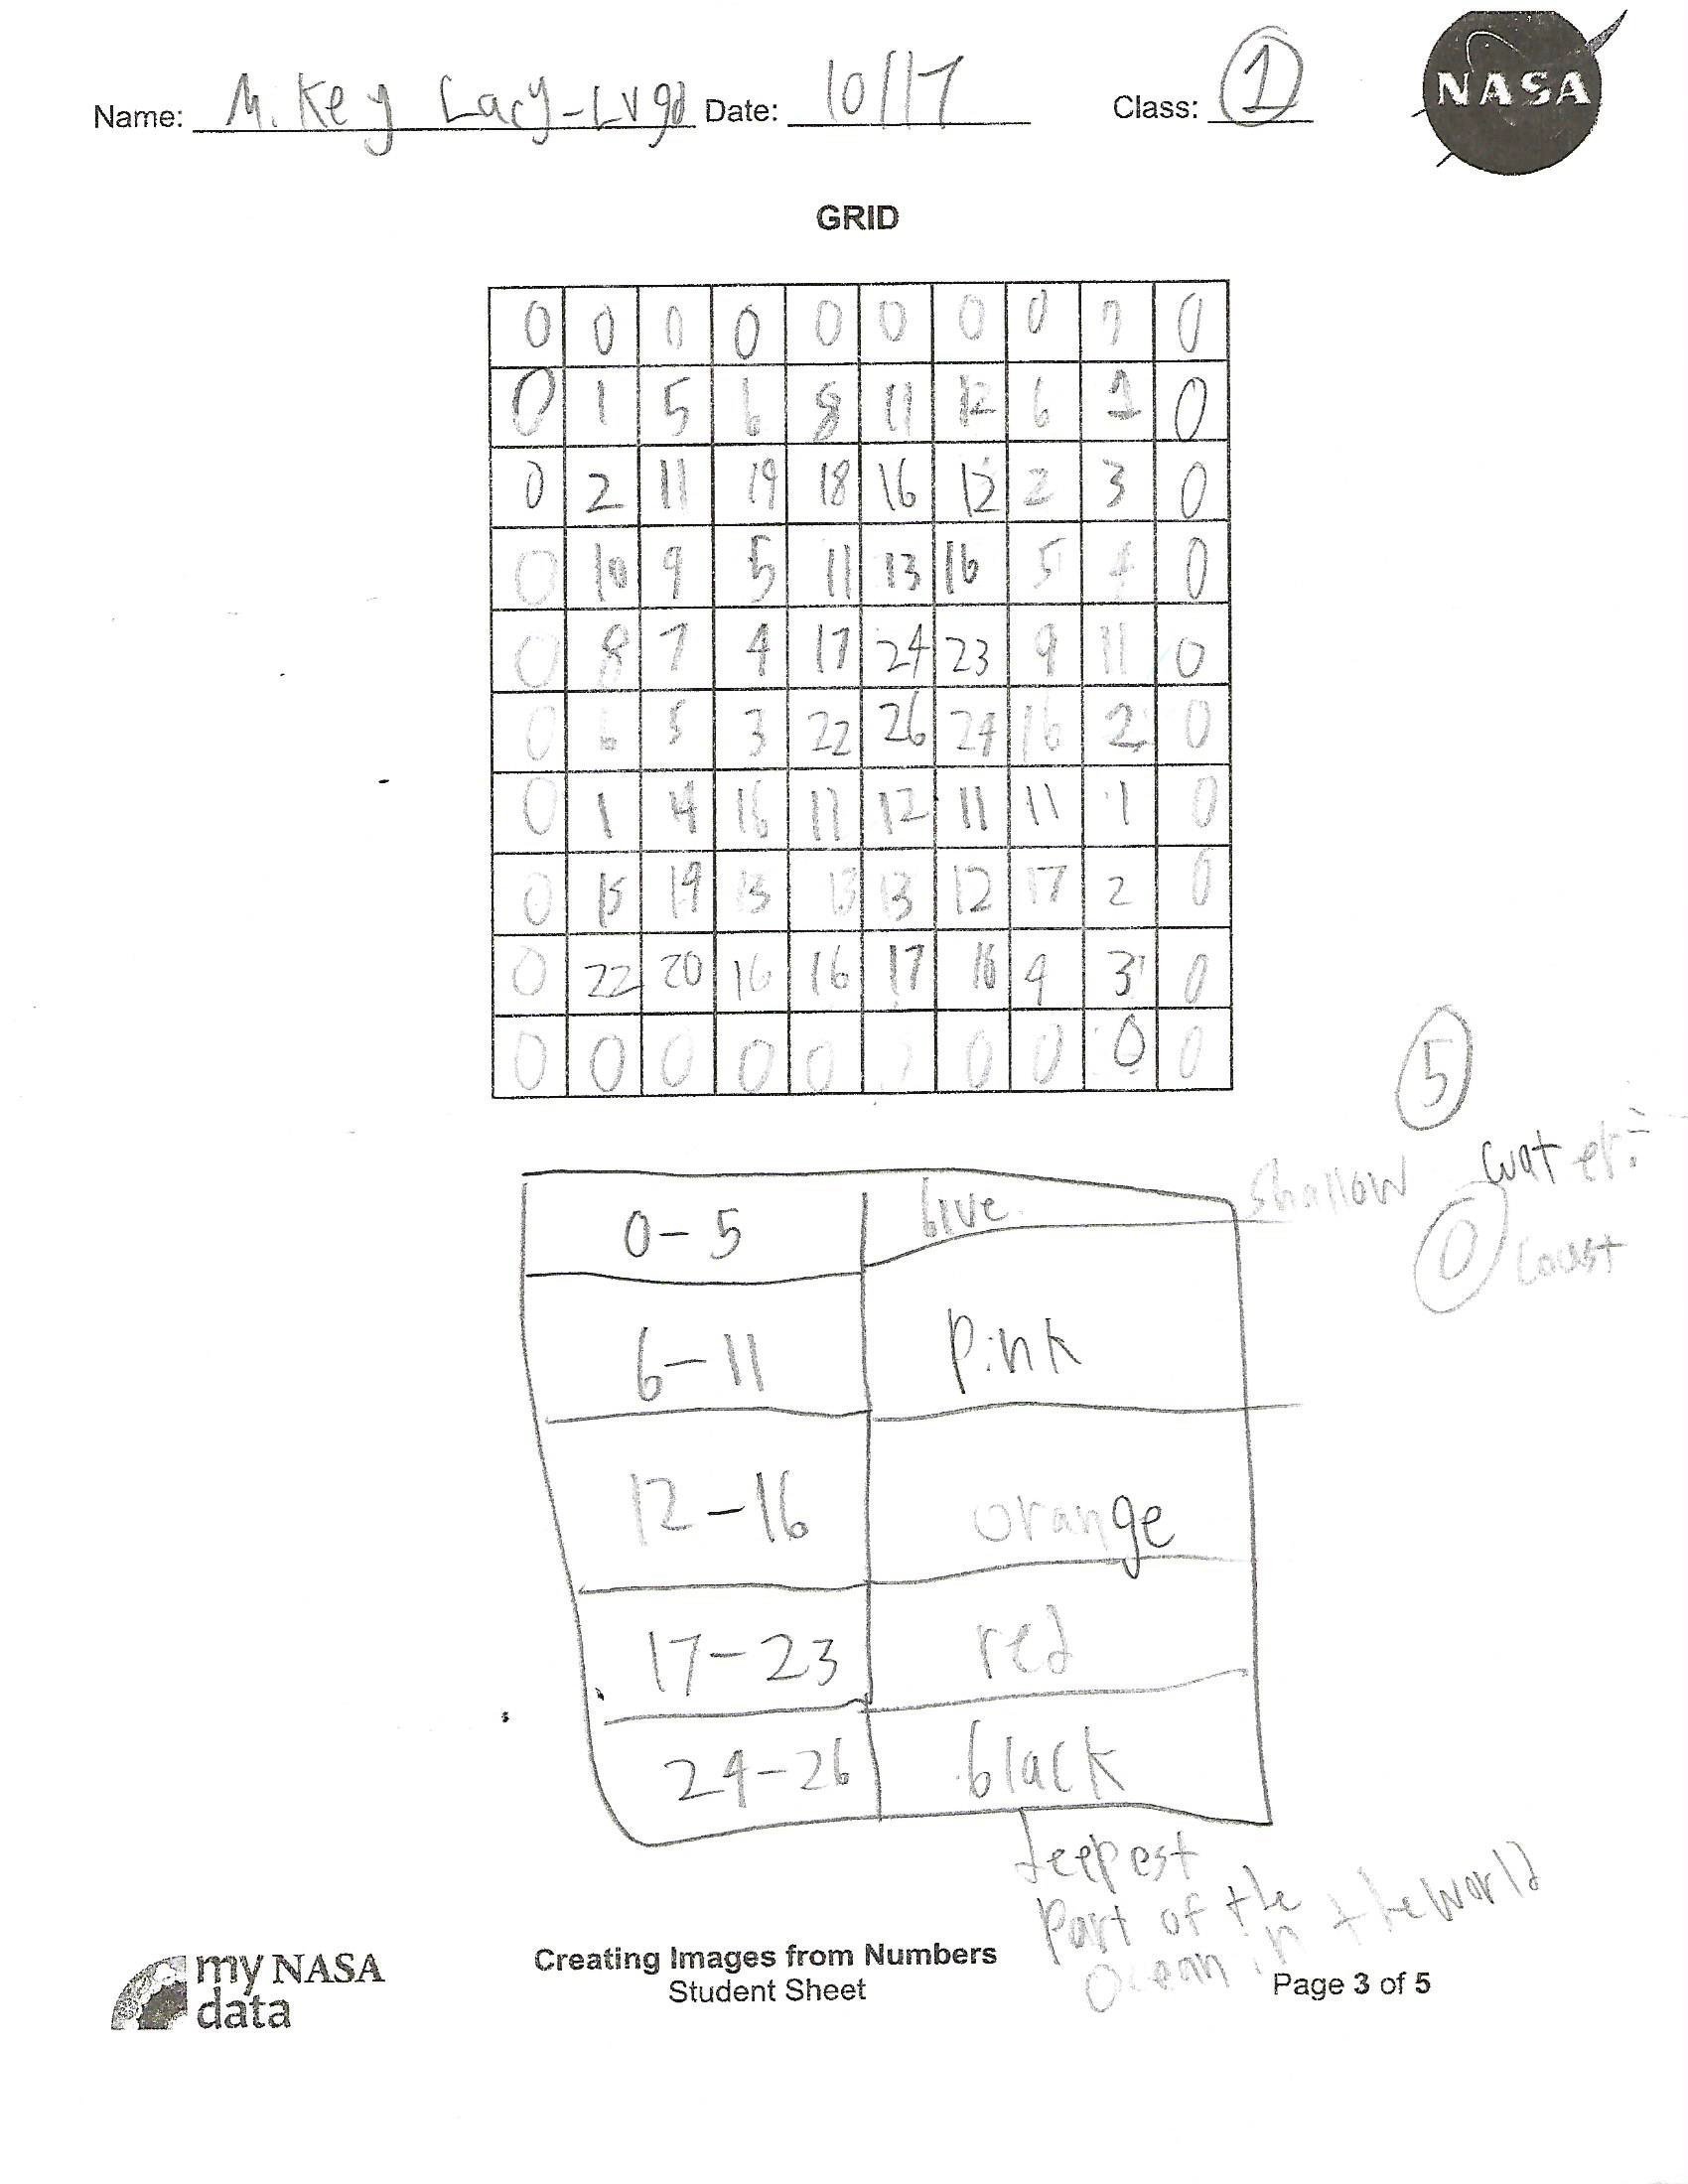 Name: Mikey Lacy- Date: 10/17 Class: 1
NASA
GRID
0 0 0 0 0 0 0 0 0 0
0 1 5 6 8 11 12 6 1 0
0 2 11 19 18 16 12 2 3 0
0 10 9 5 11 13 16 5 4 0
0 8 7 4 17 24 23 9 11 0
0 6 5 3 22 26 24 16 2 0
0 1 4 16 11 12 11 11 1 0
0 15 19 13 13 13 12 17 2 0
0 22 20 16 16 17 16 9 3 0
0 0 0 0 0 0 0 0 0
5
water:
0-5 blue shallow
0 coast
6-11 Pink
12-16 orange
17-23 red
24-26 black
deepest
Part of the
Ocean in the world
my NASA
data
Creating Images from Numbers
Student Sheet
Page 3 of 5